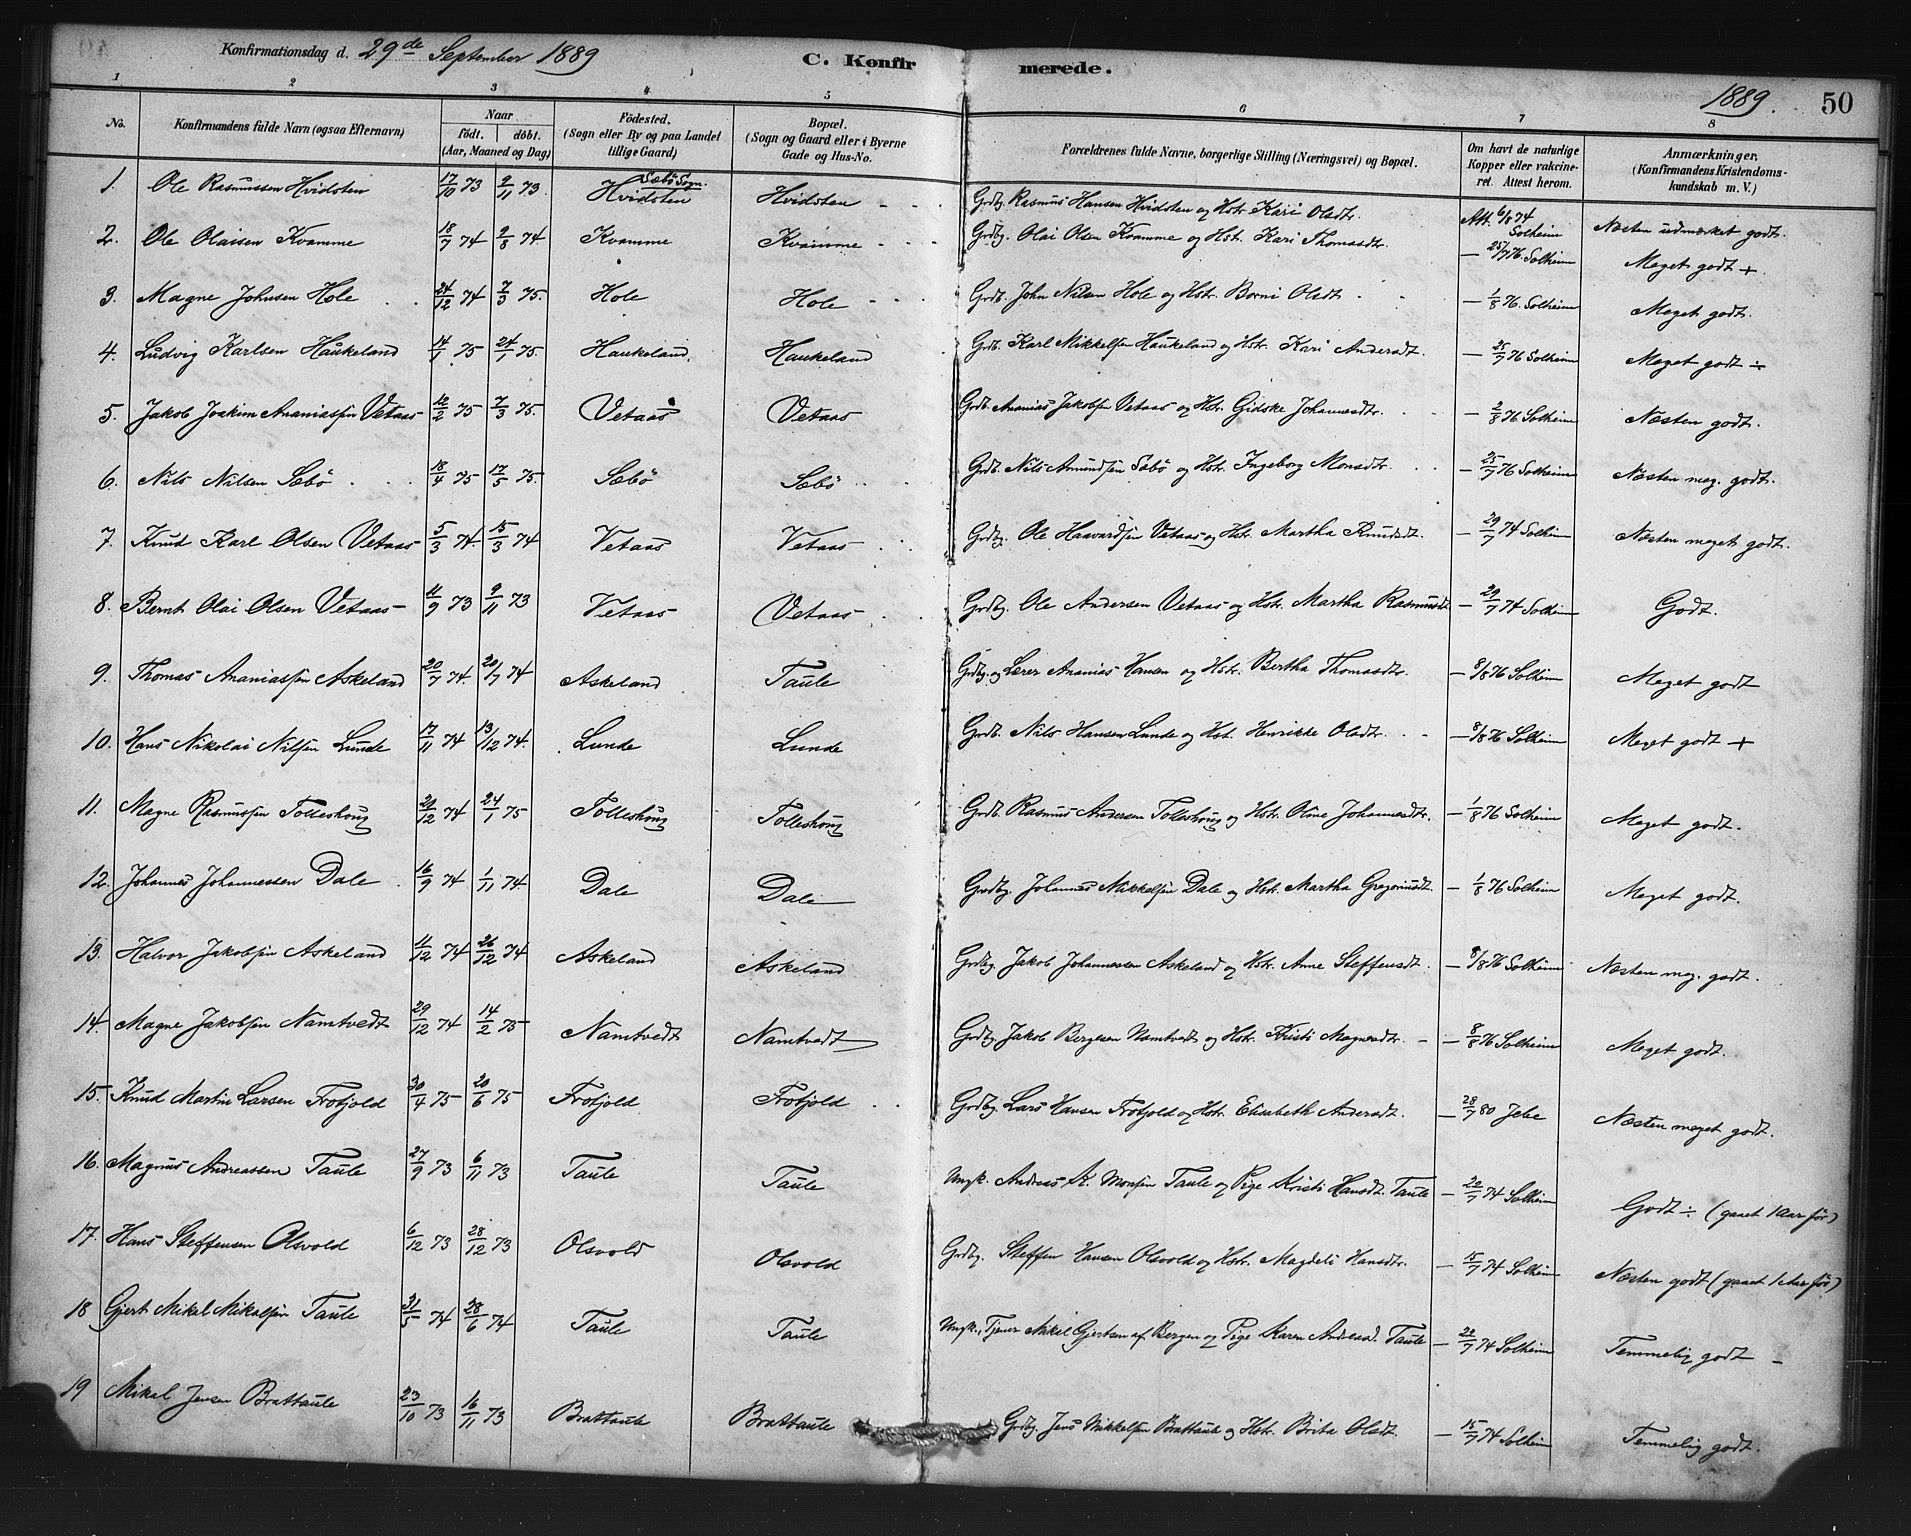 Konfirmationsdag d. 29de September 1889 C. Konfirmerede. 1889. 50
1 2 3 4 5 6 7 8
No. Konfirmandens fulde Navn (ogsaa Efternavn) Naar födt. döbt. (Aar, Maaned og Dag) Födested. (Sogn eller By og paa Landet tillige Gaard) Bopæl. (Sogn og Gaard eller i Byerne Gade og Hus-No. Forældrenes fulde Navne, borgerlige Stilling (Næringsvei) og Bopæl. Om havt de naturlige Kopper eller vakcineret. Attest herom. Anmærkninger. (Konfirmandens Kristendomskundskab m. V.)
1. Ole Rasmussen Hvidsten 17/10 73 9/11 73. Sæbö Sogn. Hvidsten Hvidsten Grdbg. Rasmus Hansen Hvidsten og Hstr. Kari Olsdtr. Att. 6/8 74 Solheim Næsten udmærket godt.
2. Ole Olaisen Kvamme 18/7 74 9/8 74 Kvamme Kvamme Grdbg. Olai Olsen Kvamme og Hstr. Kari Thomasdtr. — 25/7 76 Solheim Meget godt +
3. Magne Johnsen Hole 24/12 74 7/3 75. Hole Hole Grdb. John Nilsen Hole og Hstr. Borni Olsdt. — 1/8 76. Solheim Meget godt.
4. Ludvig Karlsen Haukeland 14/1 75 24/1 75. Haukeland. Haukeland Grdb. Karl Mikkelsen Haukeland og Hstr. Kari Andersdt. — 25/7 76 Solheim Meget godt ÷
5. Jakob Joakim Ananiassen Vetaas 10/2 75 7/3 75. Vetaas Vetaas Grdb. Ananias Jakobsen Vetaas og Hstr. Gidske Johannesdtr. — 2/8 76 Solheim Næsten godt.
6. Nils Nilsen Sæbö 18/4 75 17/5 75. Sæbö Sæbö Grdb. Nils Amundsen Sæbö og Hstr. Ingeborg Monsdtr. — 25/7 76 Solheim Næsten meg. godt.
7. Knud Karl Olsen Vetaas 5/3 74. 15/3 74 Vetaas Vetaas Grdbg. Ole Haavardsen Vetaas og Hstr. Martha Knudsdt. — 29/7 74 Solheim Næsten meget godt.
8. Bernt Olai Olsen Vetaas 11/9 73 9/11 73 Vetaas Vetaas Grdbg. Ole Andersen Vetaas og Hstr. Martha Rasmusdt — 29/7 74 Solheim Godt.
9. Thomas Ananiassen Askeland 20/7 74. 20/7 74 Askeland Taule Grdbg. og Lærer Ananias Hansen og Hstr. Bertha Thomasdtr. — 8/8 76 Solheim Meget godt
10. Hans Nikolai Nilsen Lunde 17/11 74 13/12 74. Lunde Lunde Grdb. Nils Hansen Lunde og Hst. Henrikke Olsdtr. — 8/8 76 Solheim Meget godt +
11. Magne Rasmussen Tolleshoug 29/12 74 24/1 75 Tolleshoug Tolleshoug Grdb. Rasmus Andersen Tolleshoug og Hstr. Oline Johannesdtr. — 1/8 76 Solheim Meget godt.
12. Johannes Johannessen Dale 16/9 74 1/11 74 Dale Dale Grdbg. Johannes Mikkelsen Dale og Hstr. Martha Gregoriusdt. — 1/8 76 Solheim Meget godt.
13. Halvor Jakobsen Askeland 11/12 74 26/12 74 Askeland Askeland Grdbg. Jakob Johannessen Askeland og Hstr. Anne Steffensdt. — 8/8 76 Solheim Næsten meg. godt.
14. Magne Jakobsen Namtvedt 29/12 74 14/2 75 Namtvedt Namtvedt Grdbg. Jakob Bergesen Namtvedt og Hstr. Kristi Magnesdtr. — 8/8 76 Solheim Meget godt.
15. Knud Martin Larsen Frotjold 30/4 75 20/6 75 Frotjold Frotjold Grdbg. Lars Hansen Frotjold og Hstr. Elisabeth Andersdt. — 28/7 80 Jebe Næsten meget godt.
16. Magnus Andreassen Taule 27/9 73 6/11 73 Taule Taule Ungk. Andreas K. Monsen Taule og Pige Kristi Hansdt. Taule — 22/7 74 Solheim Godt ÷ (gaaet 1 Aar för)
17. Hans Steffensen Olsvold 6/12 73 28/12 73 Olsvold Olsvold Grdbg. Steffen Hansen Olsvold og Hstr. Magdeli Hansdtr. — 15/7 74 Solheim Næsten godt (gaaet 1 Aar för)
18 Gjert Mikal Mikalsen Taule 31/5 74 28/6 74 Taule Taule Ungk., Tjener Mikal Gjertsen af Bergen og Pige Karen Andersd. Taule — 22/7 74 Solheim Temmelig godt —
19 Mikal Jensen Brattaule 23/10 73 16/11 73 Brattaule Brattaule Grdbg. Jens Mikkelsen Brattaule og Hstr. Brita Olsdt. — 15/7 74 Solheim Temmelig godt.